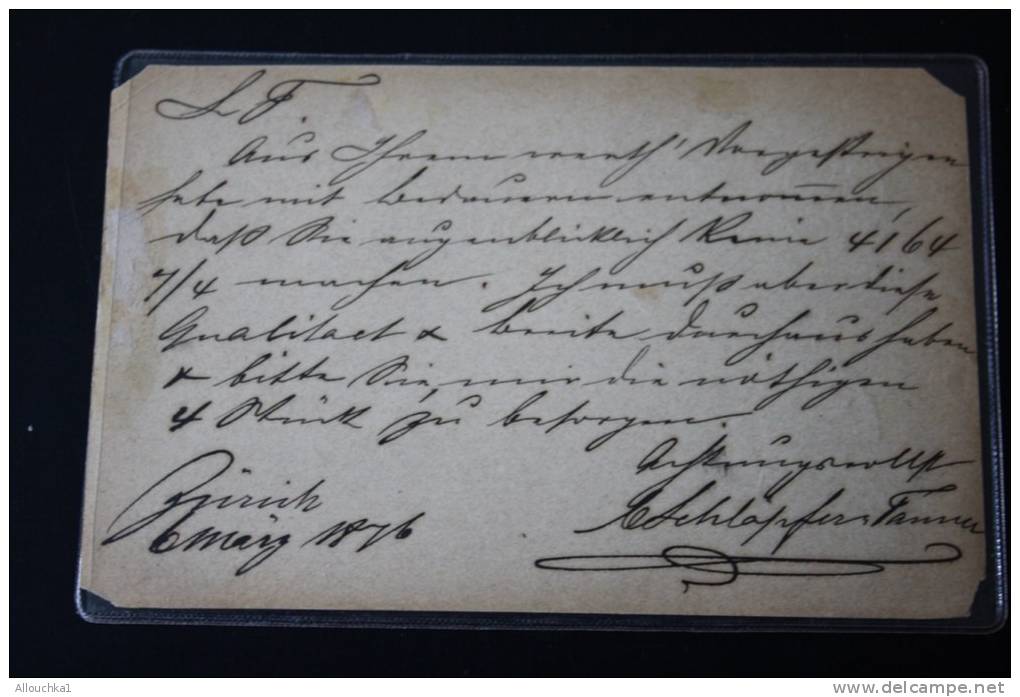 S. T.
Aus Ihrem werth' Vorgestrigen
habe mit Bedauern entnom̅en,
daß Sie augenblicklich keine 4164
7/4 machen. Ich muß aber diese
Qualitaet & Breite durchaus haben
& bitte Sie, mir die nöthigen
4 Stück zu besorgen.
Achtungsvollst
Schläpfer-Tanner
Zürich
6 März 1876
Allouchka1
www.delcampe.net